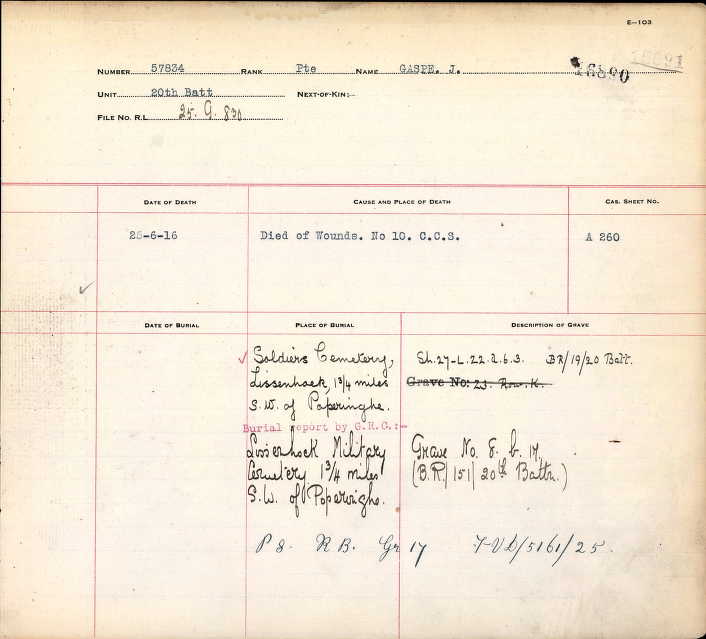 E—103
NUMBER 57834 RANK Pte NAME GASPE. J. 16890
UNIT 20th Batt NEXT-OF-KIN:—
FILE NO. R.L. 25. G. 830
DATE OF DEATH CAUSE AND PLACE OF DEATH CAS. SHEET NO.
-6-16 Died of Wounds. No 10. C.C.S. A 260
DATE OF BURIAL PLACE OF BURIAL DESCRIPTION OF GRAVE
Soldiers Cemetery, Sh.27-L.22.d.6.3. BR/19/20 Batt.
Lissenhoek, 1 3/4 miles Grave No: 23. Row. K.
S.W. of Poperinghe.
Burial report by G.R.C.:—
Lissenhock Military Grave No. 8. b. 17.
Cemetery 1 3/4 miles (B.R./151/20th Battn.)
S.W. of Poperinghe.
P 8. R B. Gr 17 /5161/25.